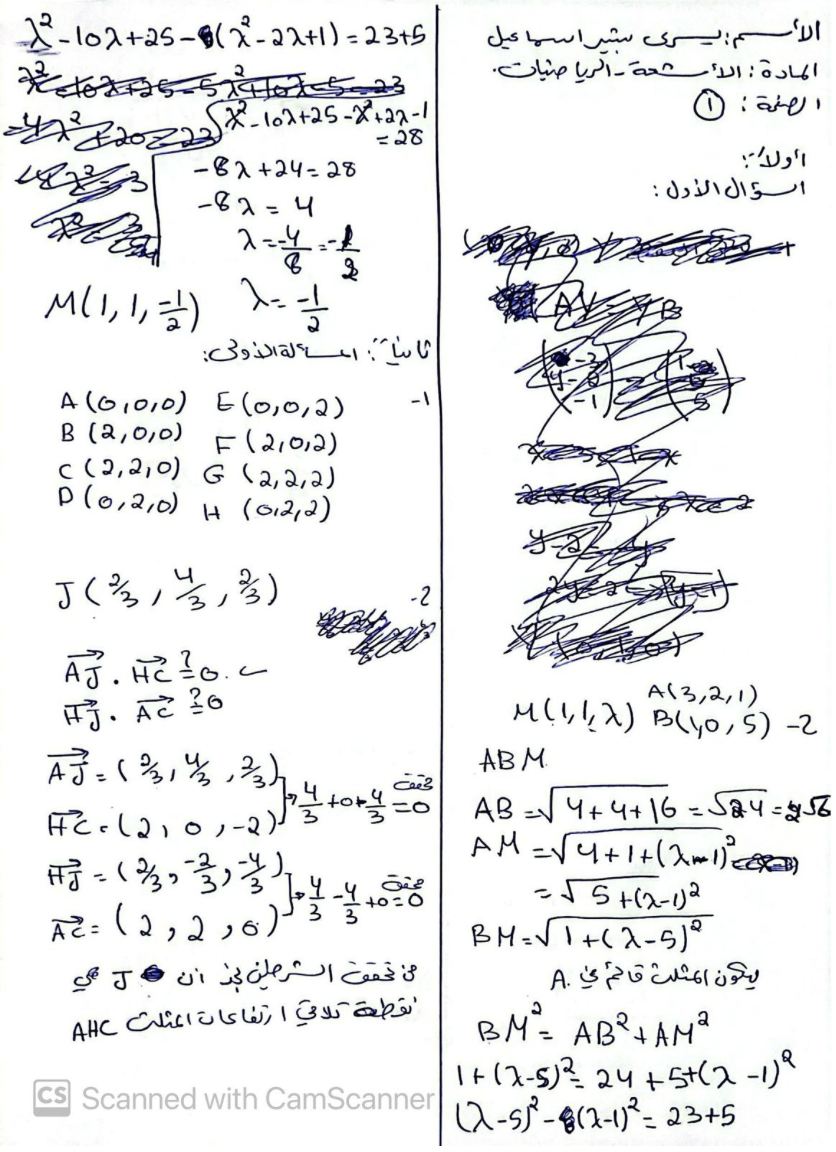 الأسم: يسرى بشير اسماعيل
المادة: الأشعة - الرياضيات.
الصفحة: ①
أولاً:
السؤال الأول:
-2 M(1,1,λ) A(3,2,1) B(1,0,5)
ABM
AB = √4+4+16 = √24 = 2√6
AM = √4+1+(λ-1)²
= √5+(λ-1)²
BM = √1+(λ-5)²
يكون المثلث قائم في A.
BM² = AB² + AM²
1+(λ-5)² = 24+5+(λ-1)²
(λ-5)² - (λ-1)² = 23+5
λ² - 10λ + 25 - (λ² - 2λ + 1) = 23+5
λ² - 10λ + 25 - λ² + 2λ - 1 = 28
-8λ + 24 = 28
-8λ = 4
λ = -4/8 = -1/2
M(1, 1, -1/2) λ = -1/2
ثانياً: المسألة الأولى:
-1
A (0,0,0) E (0,0,2)
B (2,0,0) F (2,0,2)
C (2,2,0) G (2,2,2)
D (0,2,0) H (0,2,2)
-2
J (2/3, 4/3, 2/3)
AJ . HC ?= 0. ✓
HJ . AC ?= 0
AJ = (2/3, 4/3, 2/3)
HC = (2, 0, -2) → 4/3 + 0 + 4/3 = 0 محقق
HJ = (2/3, -2/3, -4/3)
AC = (2, 2, 0) → 4/3 - 4/3 + 0 = 0 محقق
من تحقق الشرطين نجد ان J هي
نقطة تلاقي ارتفاعات المثلث AHC
CS Scanned with CamScanner